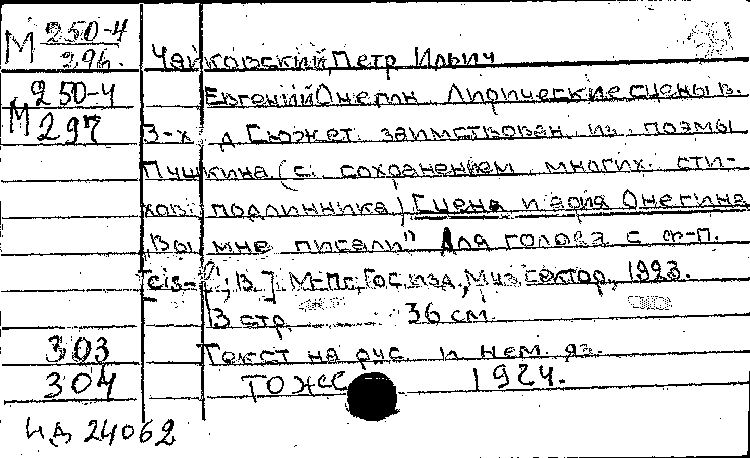 М 250-4
296.
Чайковский, Петр Ильич
250-4
Евгений Онегин. Лирические сцены в.
М 297
3-х д. Сюжет заимствован из поэмы
Пушкина (с сохранением многих сти-
хов подлинника). Сцена и ария Онегина
"Вы мне писали" Для голоса с ф-п.
М-Пг, Гос. изд., Муз. сектор, 1923.
13 стр. 36 см.
303 Текст на рус. и нем. яз.
304 тоже 1924.
ИД 24062